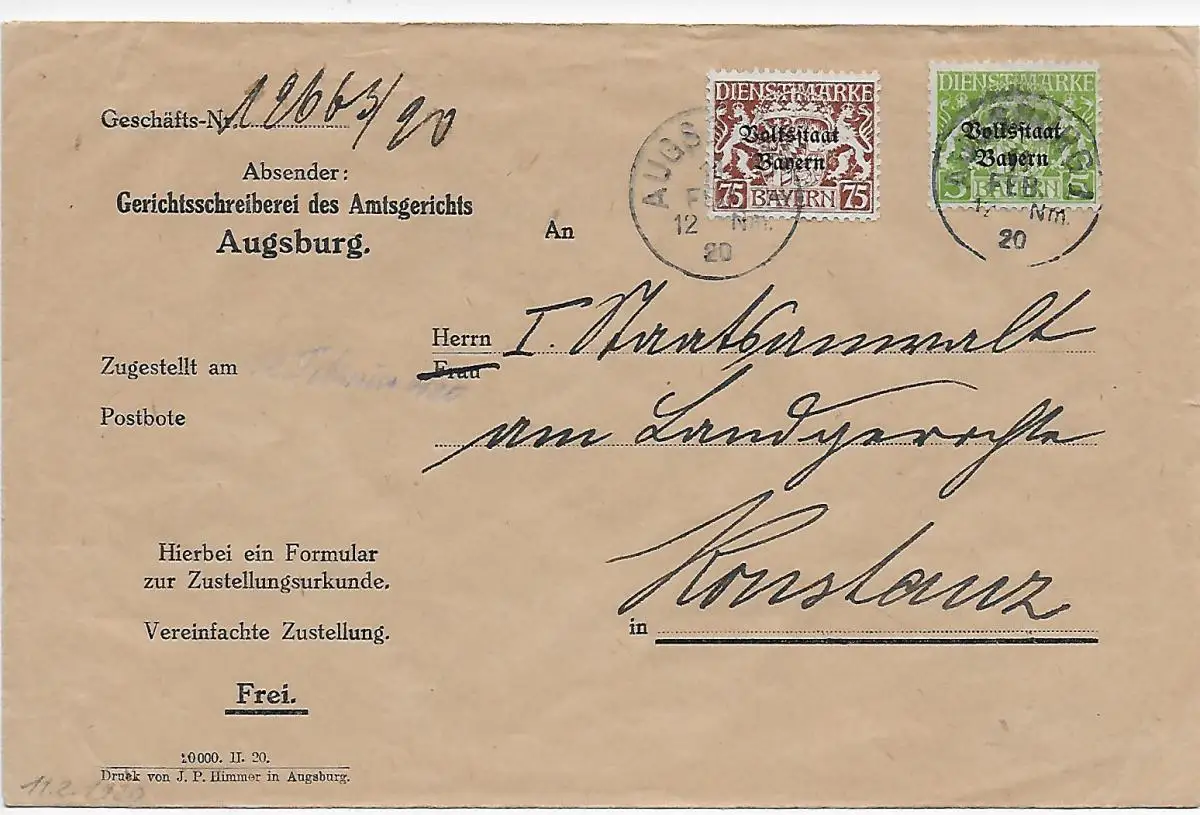 Geschäfts-Nr. 12663/20
Absender:
Gerichtsschreiberei des Amtsgerichts
Augsburg.
DIENSTMARKE
Volksstaat
Bayern
75 BAYERN 75
DIENSTMARKE
Volksstaat
Bayern
5 BAYERN 5
AUGS
12 Nm.
20
FEB.
12 Nm.
20
An
Herrn I. Staatsanwalt
Frau
am Landgerichte
in Konstanz
Zugestellt am
Postbote
Hierbei ein Formular
zur Zustellungsurkunde.
Vereinfachte Zustellung.
Frei.
10000. II. 20.
Druck von J. P. Himmer in Augsburg.
11.2.1920